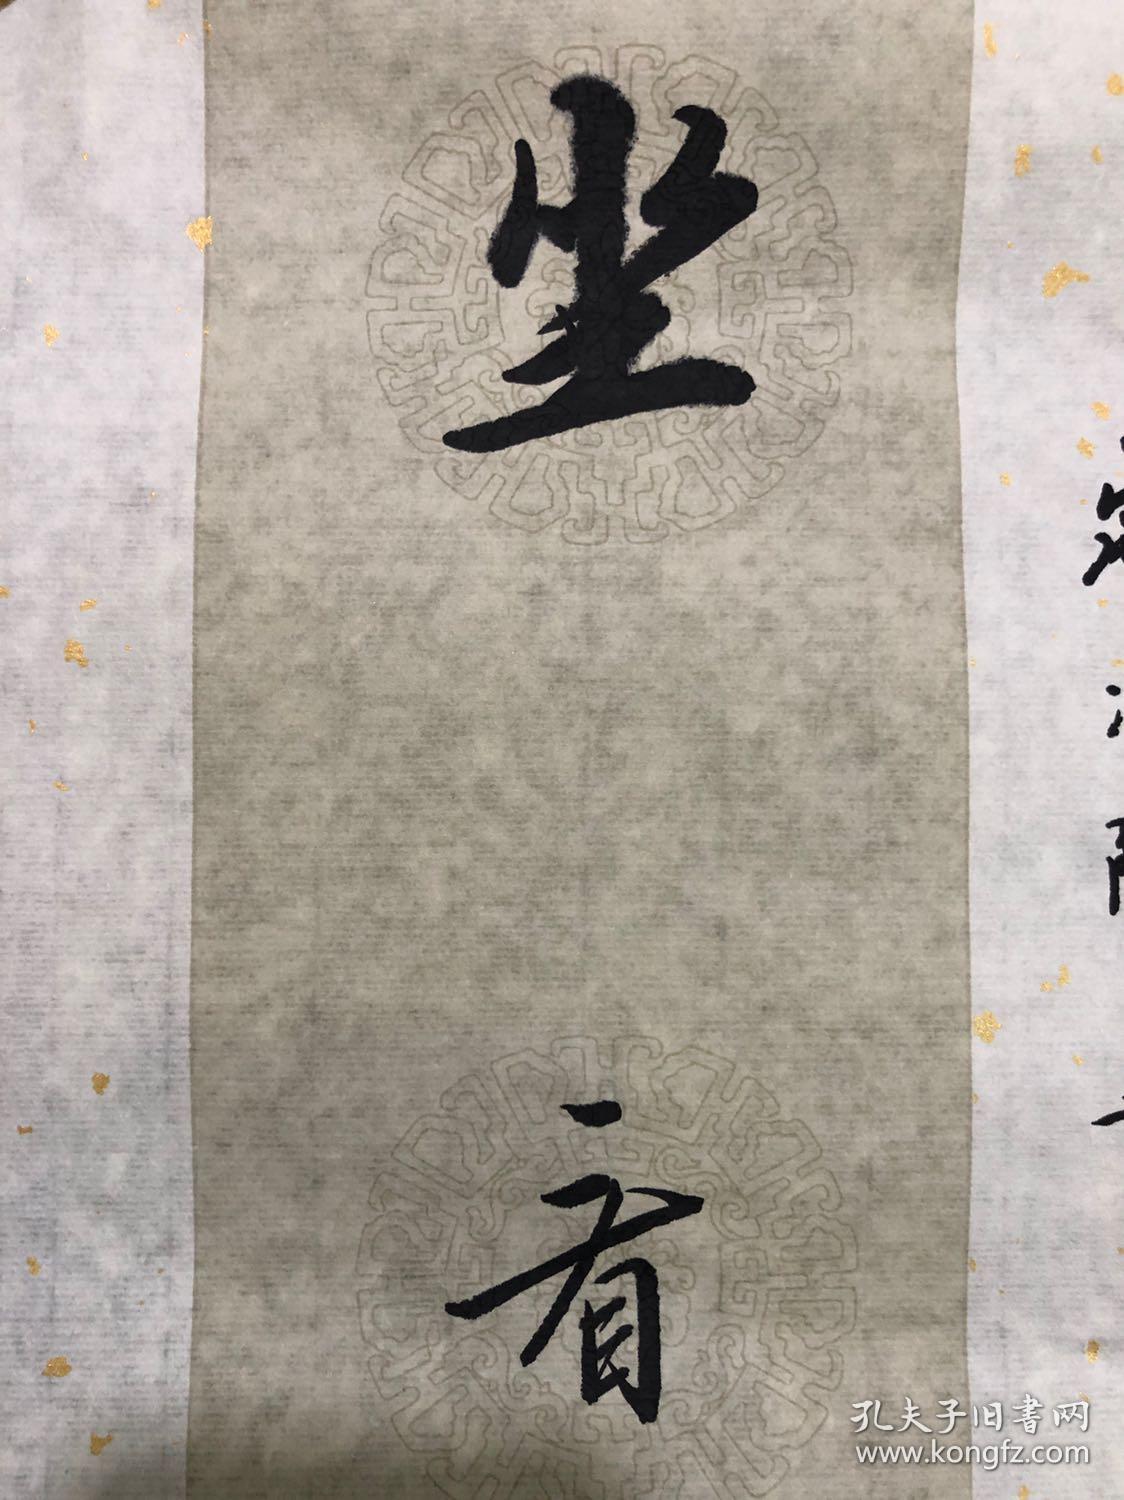 坐
看
孔夫子旧書网
www.kongfz.com